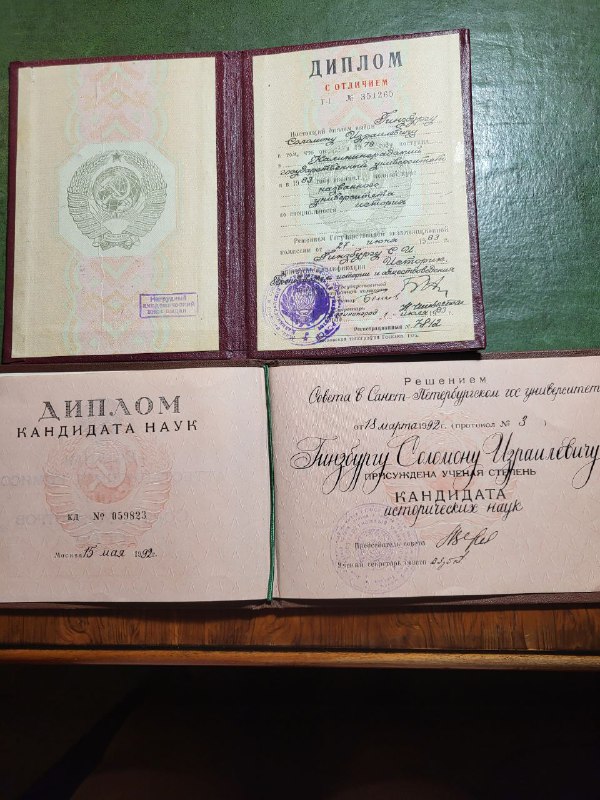 ДИПЛОМ
С ОТЛИЧИЕМ
Г-I № 351265
Настоящий диплом выдан Гинзбургу
Соломону Израилевичу
в том, что он в 1978 году поступил
в Калининградский
государственный университет
и в 1983 году окончил полный курс
названного
университета
по специальности история
Решением Государственной экзаменационной
комиссии от 27 июня 1983 г.
Гинзбургу С. И.
присвоена квалификация Историк.
Преподаватель истории и обществоведения
Государственной
Калининград июля 1983 г.
Регистрационный № 7812
Нагрудный
академический
знак выдан
ДИПЛОМ
КАНДИДАТА НАУК
КД № 059823
Москва 15 мая 1992 г.
Решением
Совета в Санкт-Петербургском гос университете
от 18 марта 1992 г. (протокол № 3 )
Гинзбургу Соломону Израилевичу
ПРИСУЖДЕНА УЧЕНАЯ СТЕПЕНЬ
КАНДИДАТА
исторических наук
Председатель совета
Ученый секретарь совета